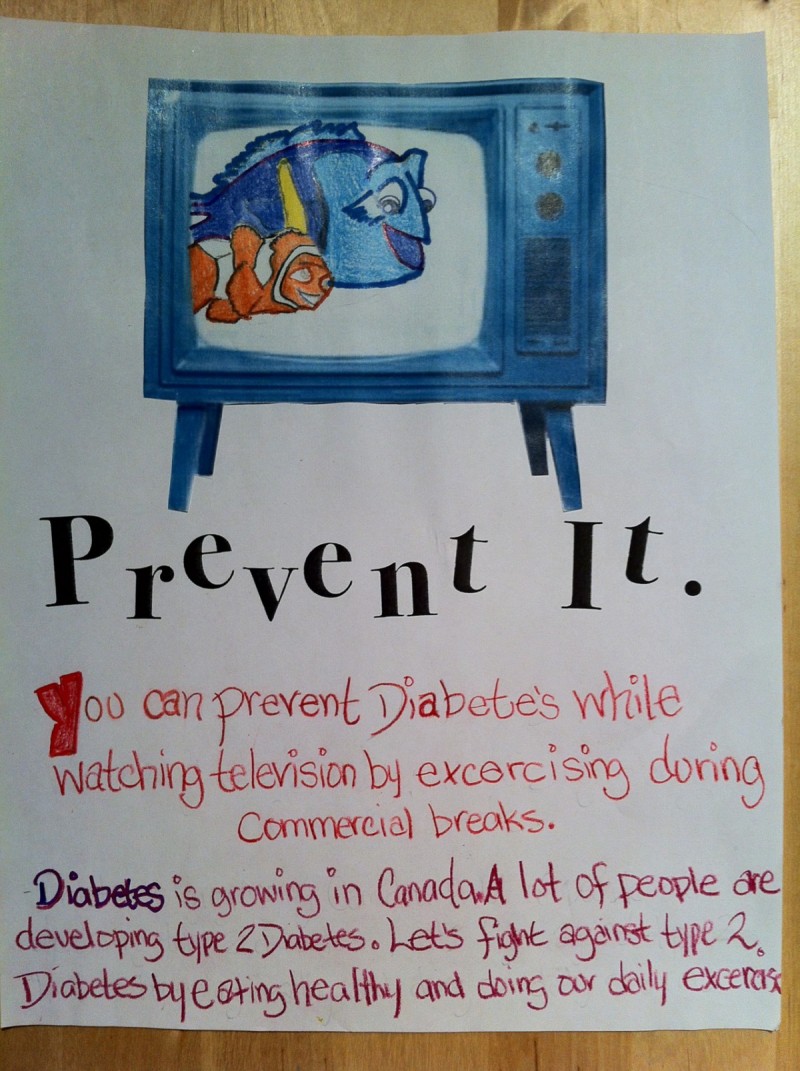 Prevent It.
You can prevent Diabete's while
watching television by excercising during
Commercial breaks.
Diabetes is growing in Canada. A lot of people are
developing type 2 Diabetes. Let's fight against type 2.
Diabetes by eating healthy and doing our daily excercise